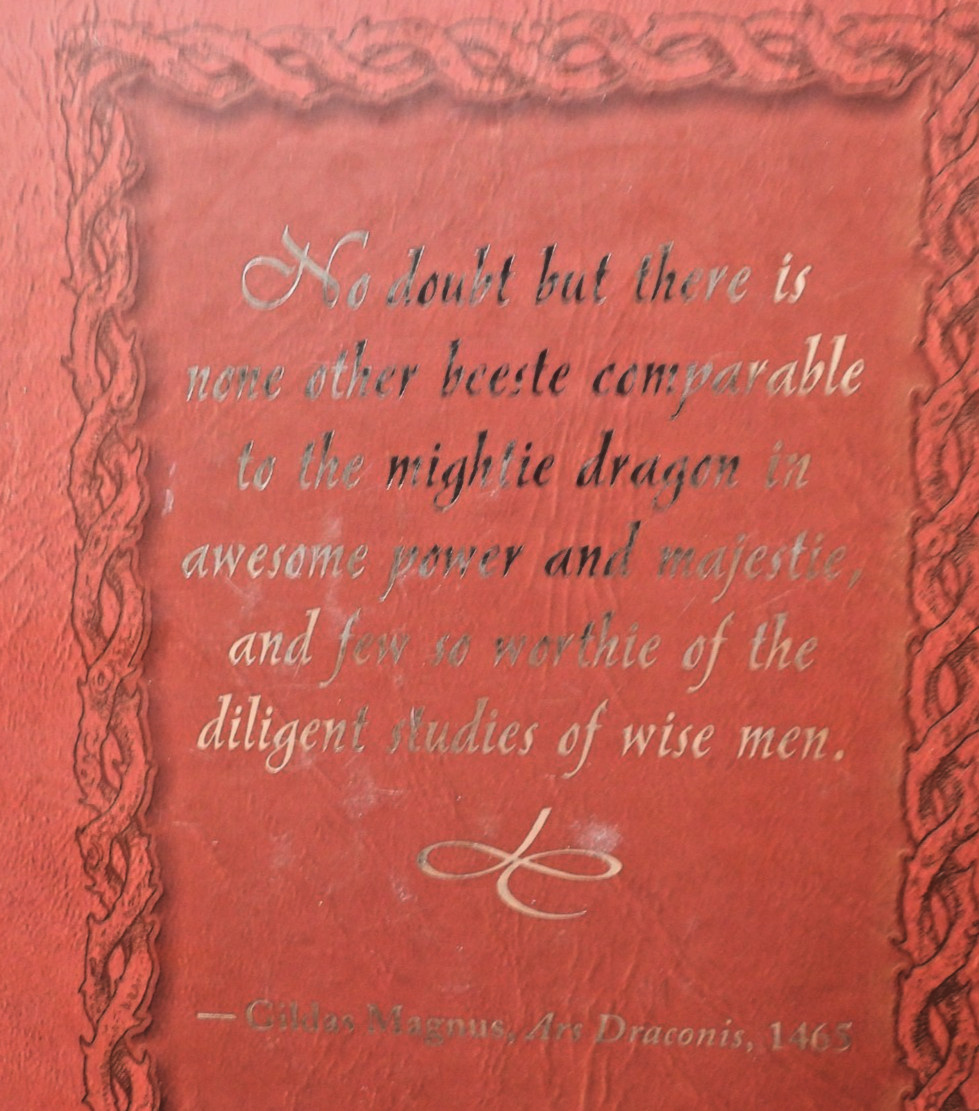 No doubt but there is
none other beeste comparable
to the mightie dragon in
awesome power and majestie,
and few so worthie of the
diligent studies of wise men.
— Gildas Magnus, Ars Draconis, 1465